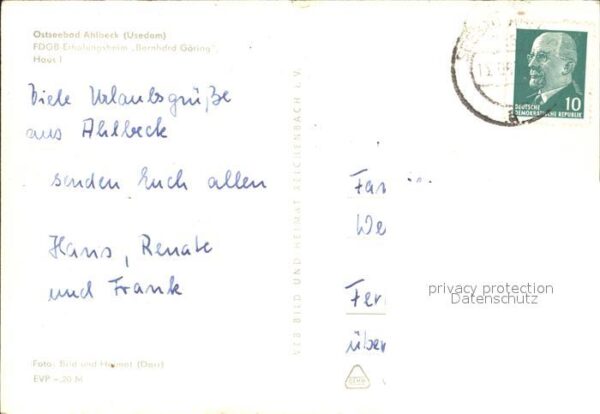 Ostseebad Ahlbeck (Usedom)
FDGB-Erholungsheim „Bernhard Göring",
Haus I
Viele Urlaubsgrüße
aus Ahlbeck
senden Euch allen
Hans, Renate
und Frank
Foto: Bild und Heimat (Darr)
EVP –,20 M
VEB BILD UND HEIMAT REICHENBACH i. V.
10
DEUTSCHE
DEMOKRATISCHE REPUBLIK
Fa
We
Fer
über
privacy protection
Datenschutz